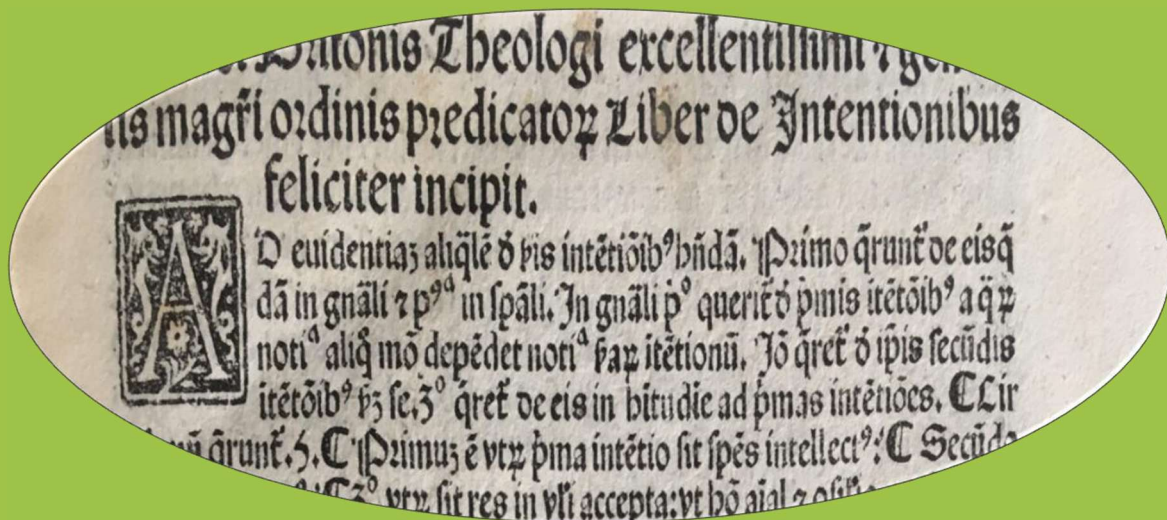 Theologi excellentissimi ⁊
magr̄i ordinis predicatoꝝ Liber de Intentionibus
feliciter incipit.
AD euidentiaꝫ aliq̄lē d̄ intētiōibꝰ hn̄dā. Primo q̄runt᷑ de eis q̄
dā in gn̄ali ⁊ pꝰᵃ in sp̄ali. In gn̄ali p̊ querit᷑ d̄ p̄mis itētōibꝰ a q̄ꝝ
notiᵃ aliq̄ mō depēdet notiᵃ itētionū. q̄ret᷑ d̄ ip̄is secūdis
itētōibꝰ se. 3º q̄ret᷑ de eis in hitudīe ad p̄mas intētiōes. ¶ Cir
q̄runt᷑. 5. ¶ Primuꝫ ē vtꝝ p̄ma intētio sit sp̄es intellectꝰ: ¶ Secūdo
¶ 3º vtꝝ sit res in vl̄i accepta: vt hō aīal ⁊